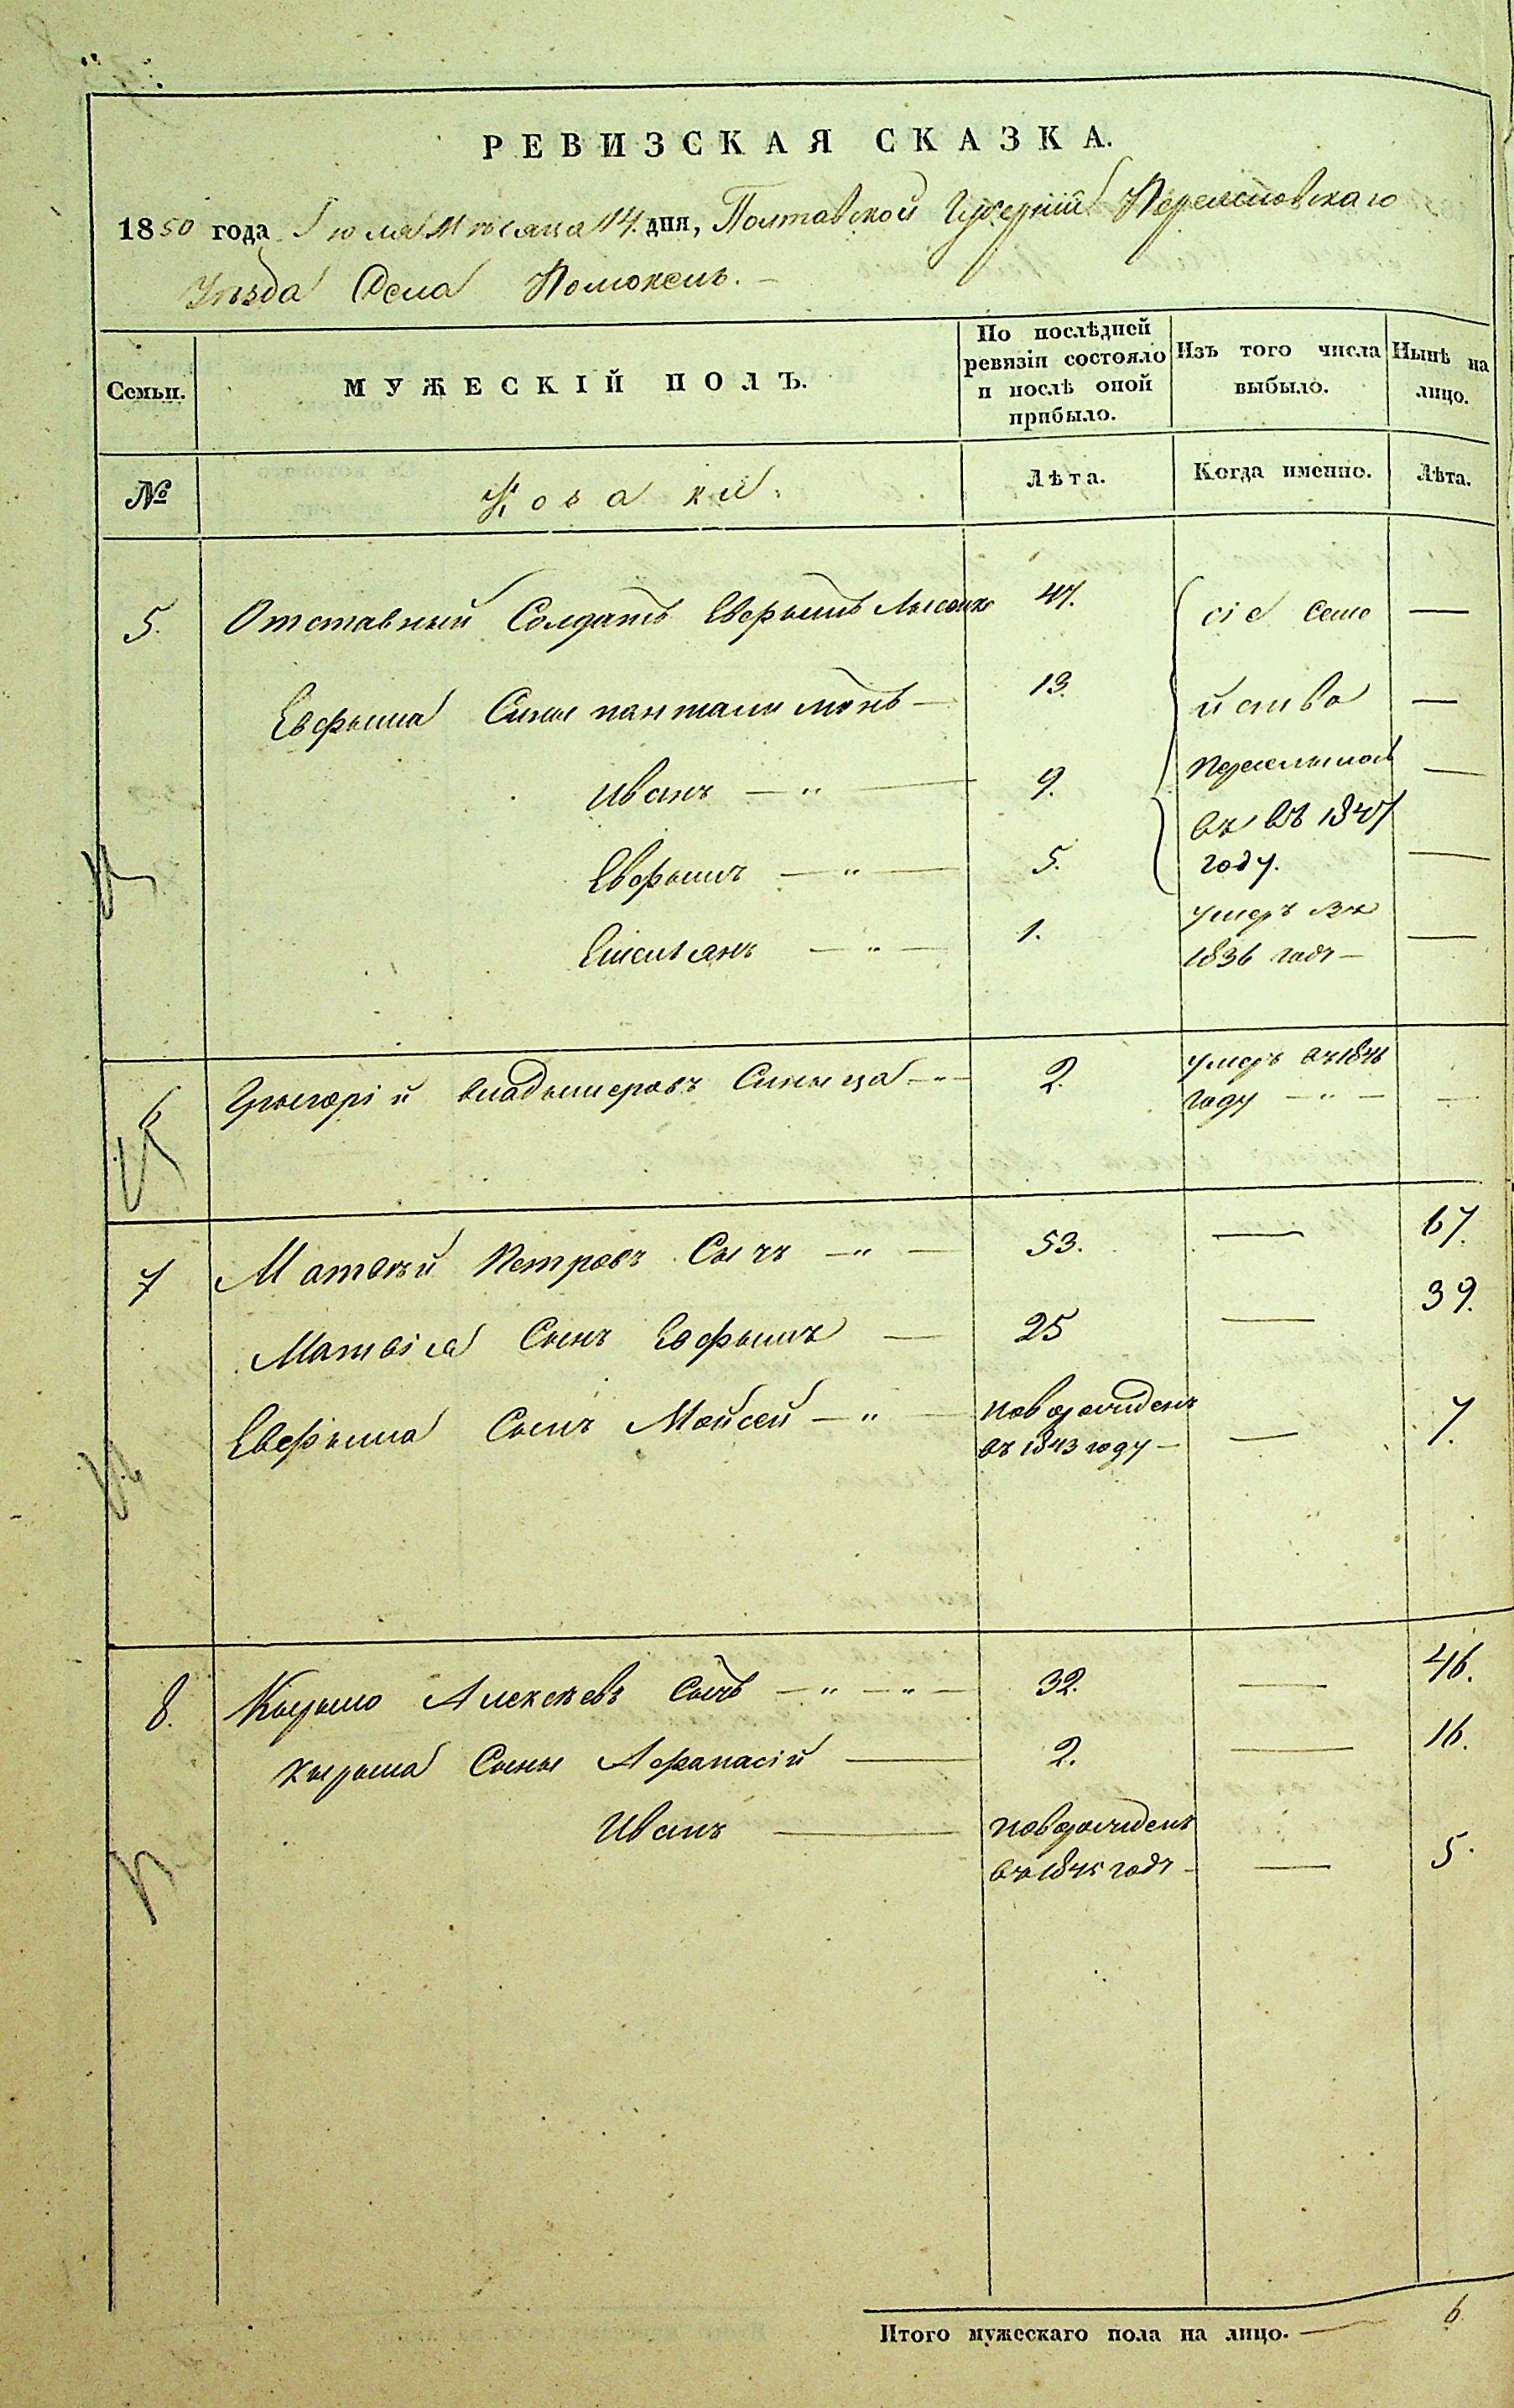 РЕВИЗСКАЯ СКАЗКА.
1850 года Іюля Мѣсяца 14. дня, Полтавской Губерніи Переяславскаго
Уѣзда Села Помоклъ.
Семьи. МУЖЕСКІЙ ПОЛЪ. По послѣдней ревизіи состояло и послѣ оной прибыло. Изъ того числа выбыло. Нынѣ на лицо.
№ Козаки. Лѣта. Когда именно. Лѣта.
5. Отставный Солдатъ Евфымъ Лысенко 47. сіе семе —
Евфыма Сыны пантелимонъ — 13. йство —
Иванъ — " — 9. переселилось —
въ 1847
Евфымъ — " — 5. году. —
Емельянъ — " — 1. умеръ въ
1836 годѣ — —
6 Грыгорій владымеровъ Сыныца — " — 2. умеръ въ
году — " — —
7 Матвѣй Петровъ Сычъ — " — 53. — 67.
Матвія Сынъ Евфымъ — 25 — 39.
Евфыма Сынъ Мойсей — " — новорожденъ
въ 1843 году — — 7.
8. Кырыло Алексѣевъ Сычъ — " — " — 32. — 46.
Кырыла Сыны Афанасій — 2. — 16.
Иванъ — новорожденъ
въ 1845 годѣ — — 5.
Итого мужескаго пола на лицо. — 6